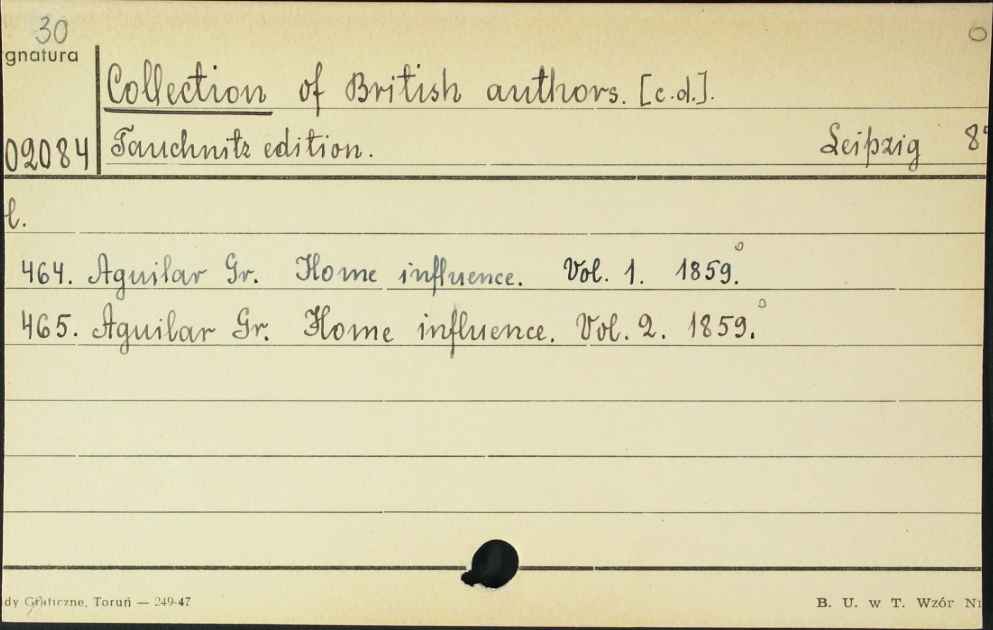 30
gnatura
Collection of British authors. [c.d.].
02084 Tauchnitz edition. Leipzig 8°
l.
464. Aguilar Gr. Home influence. Vol. 1. 1859.°
465. Aguilar Gr. Home influence. Vol. 2. 1859.°
dy Graficzne, Toruń — 249-47 B. U. w T. Wzór Nr